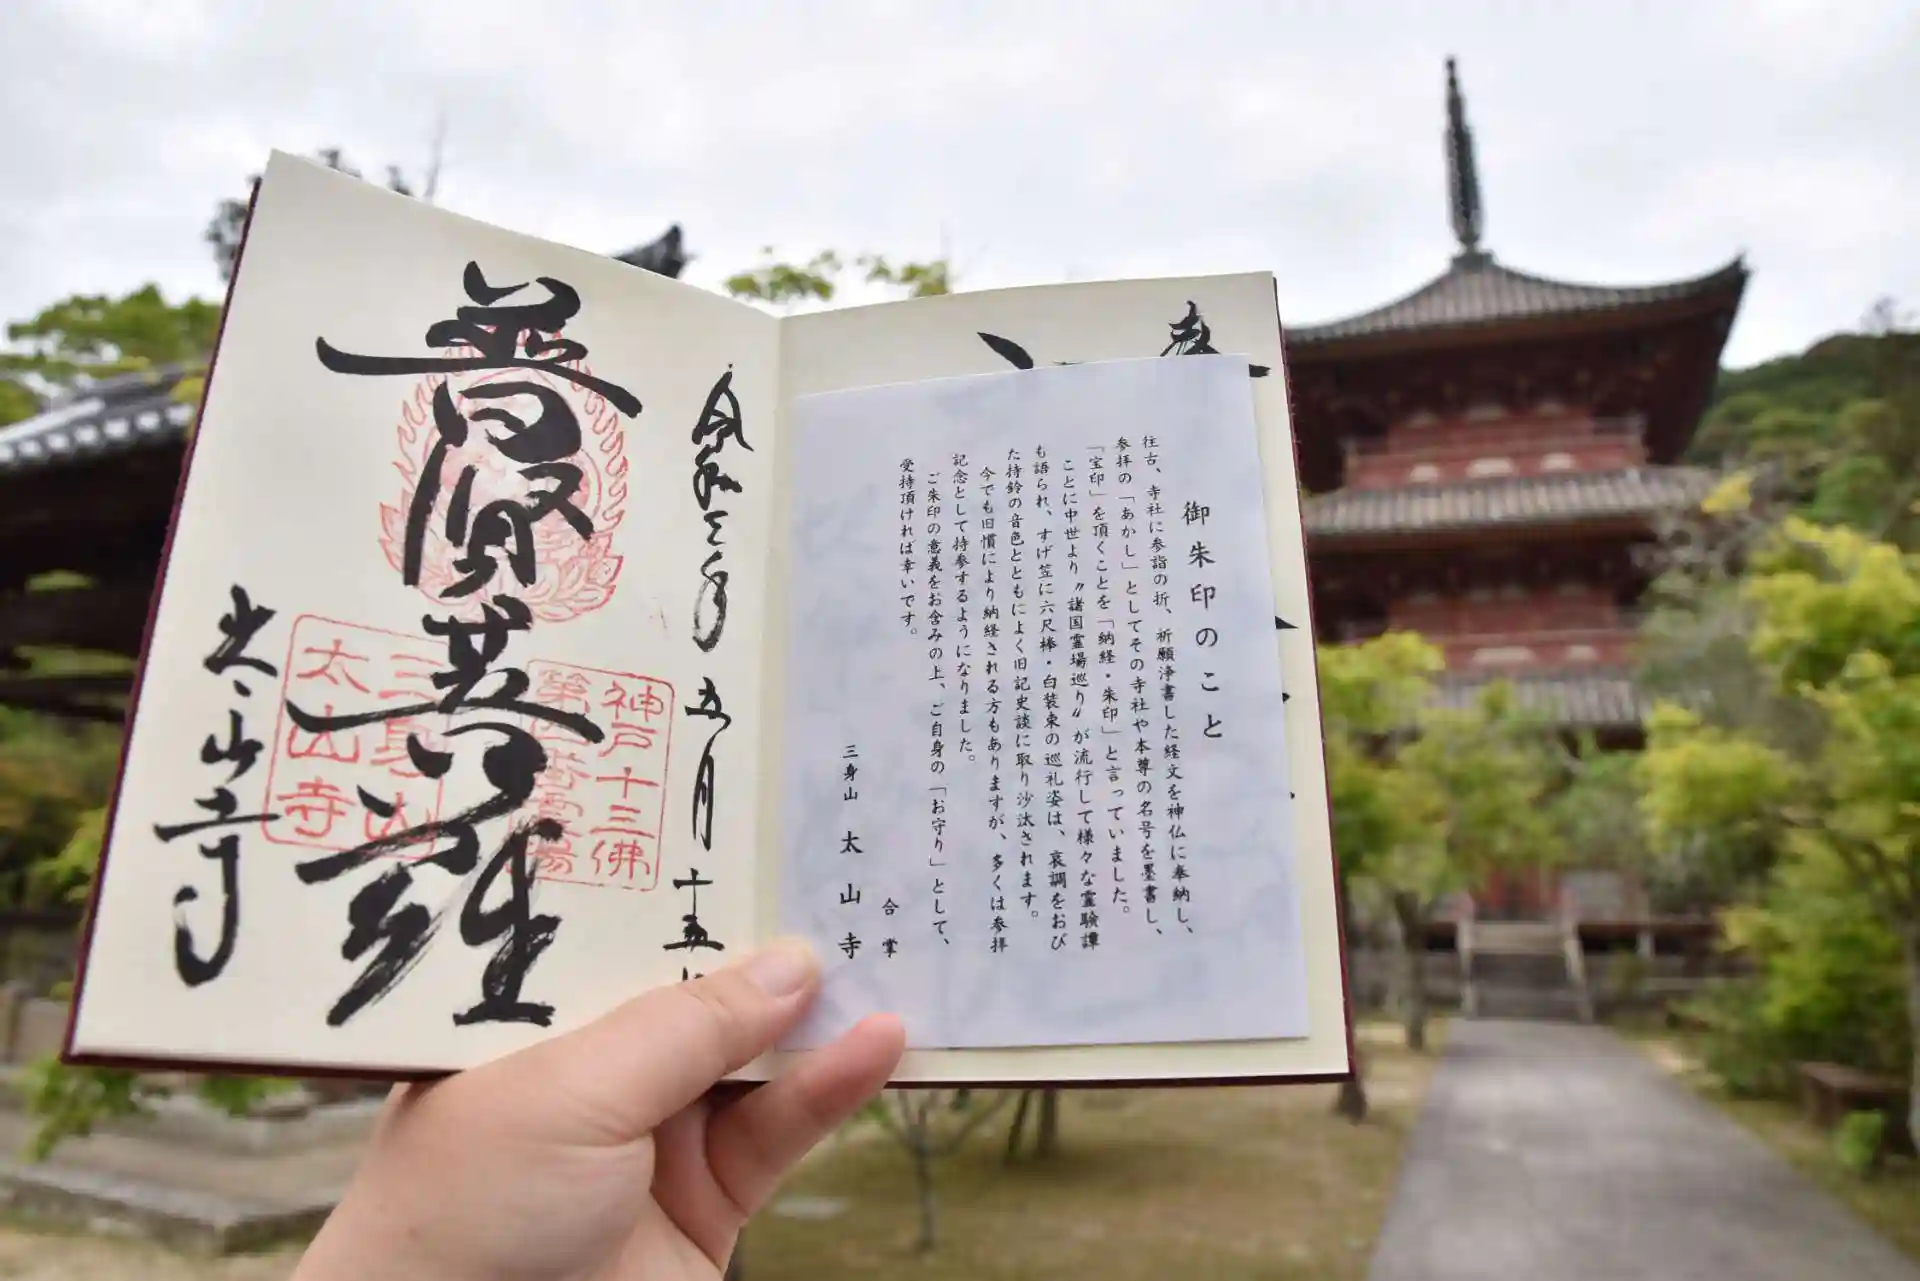 奉
御朱印のこと
往古、寺社に参詣の折、祈願浄書した経文を神仏に奉納し、
参拝の「あかし」としてその寺社や本尊の名号を墨書し、
「宝印」を頂くことを「納経・朱印」と言っていました。
ことに中世より〝諸国霊場巡り〟が流行して様々な霊験譚
も語られ、すげ笠に六尺棒・白装束の巡礼姿は、哀調をおび
た持鈴の音色とともによく旧記史談に取り沙汰されます。
今でも旧慣により納経される方もありますが、多くは参拝
記念として持参するようになりました。
ご朱印の意義をお含みの上、ご自身の「お守り」として、
受持頂ければ幸いです。
合掌
三身山 太山寺
令和三年 五月 十五日
普賢菩薩
太山寺
神戸十三佛
第四番霊場
三身山
太山寺